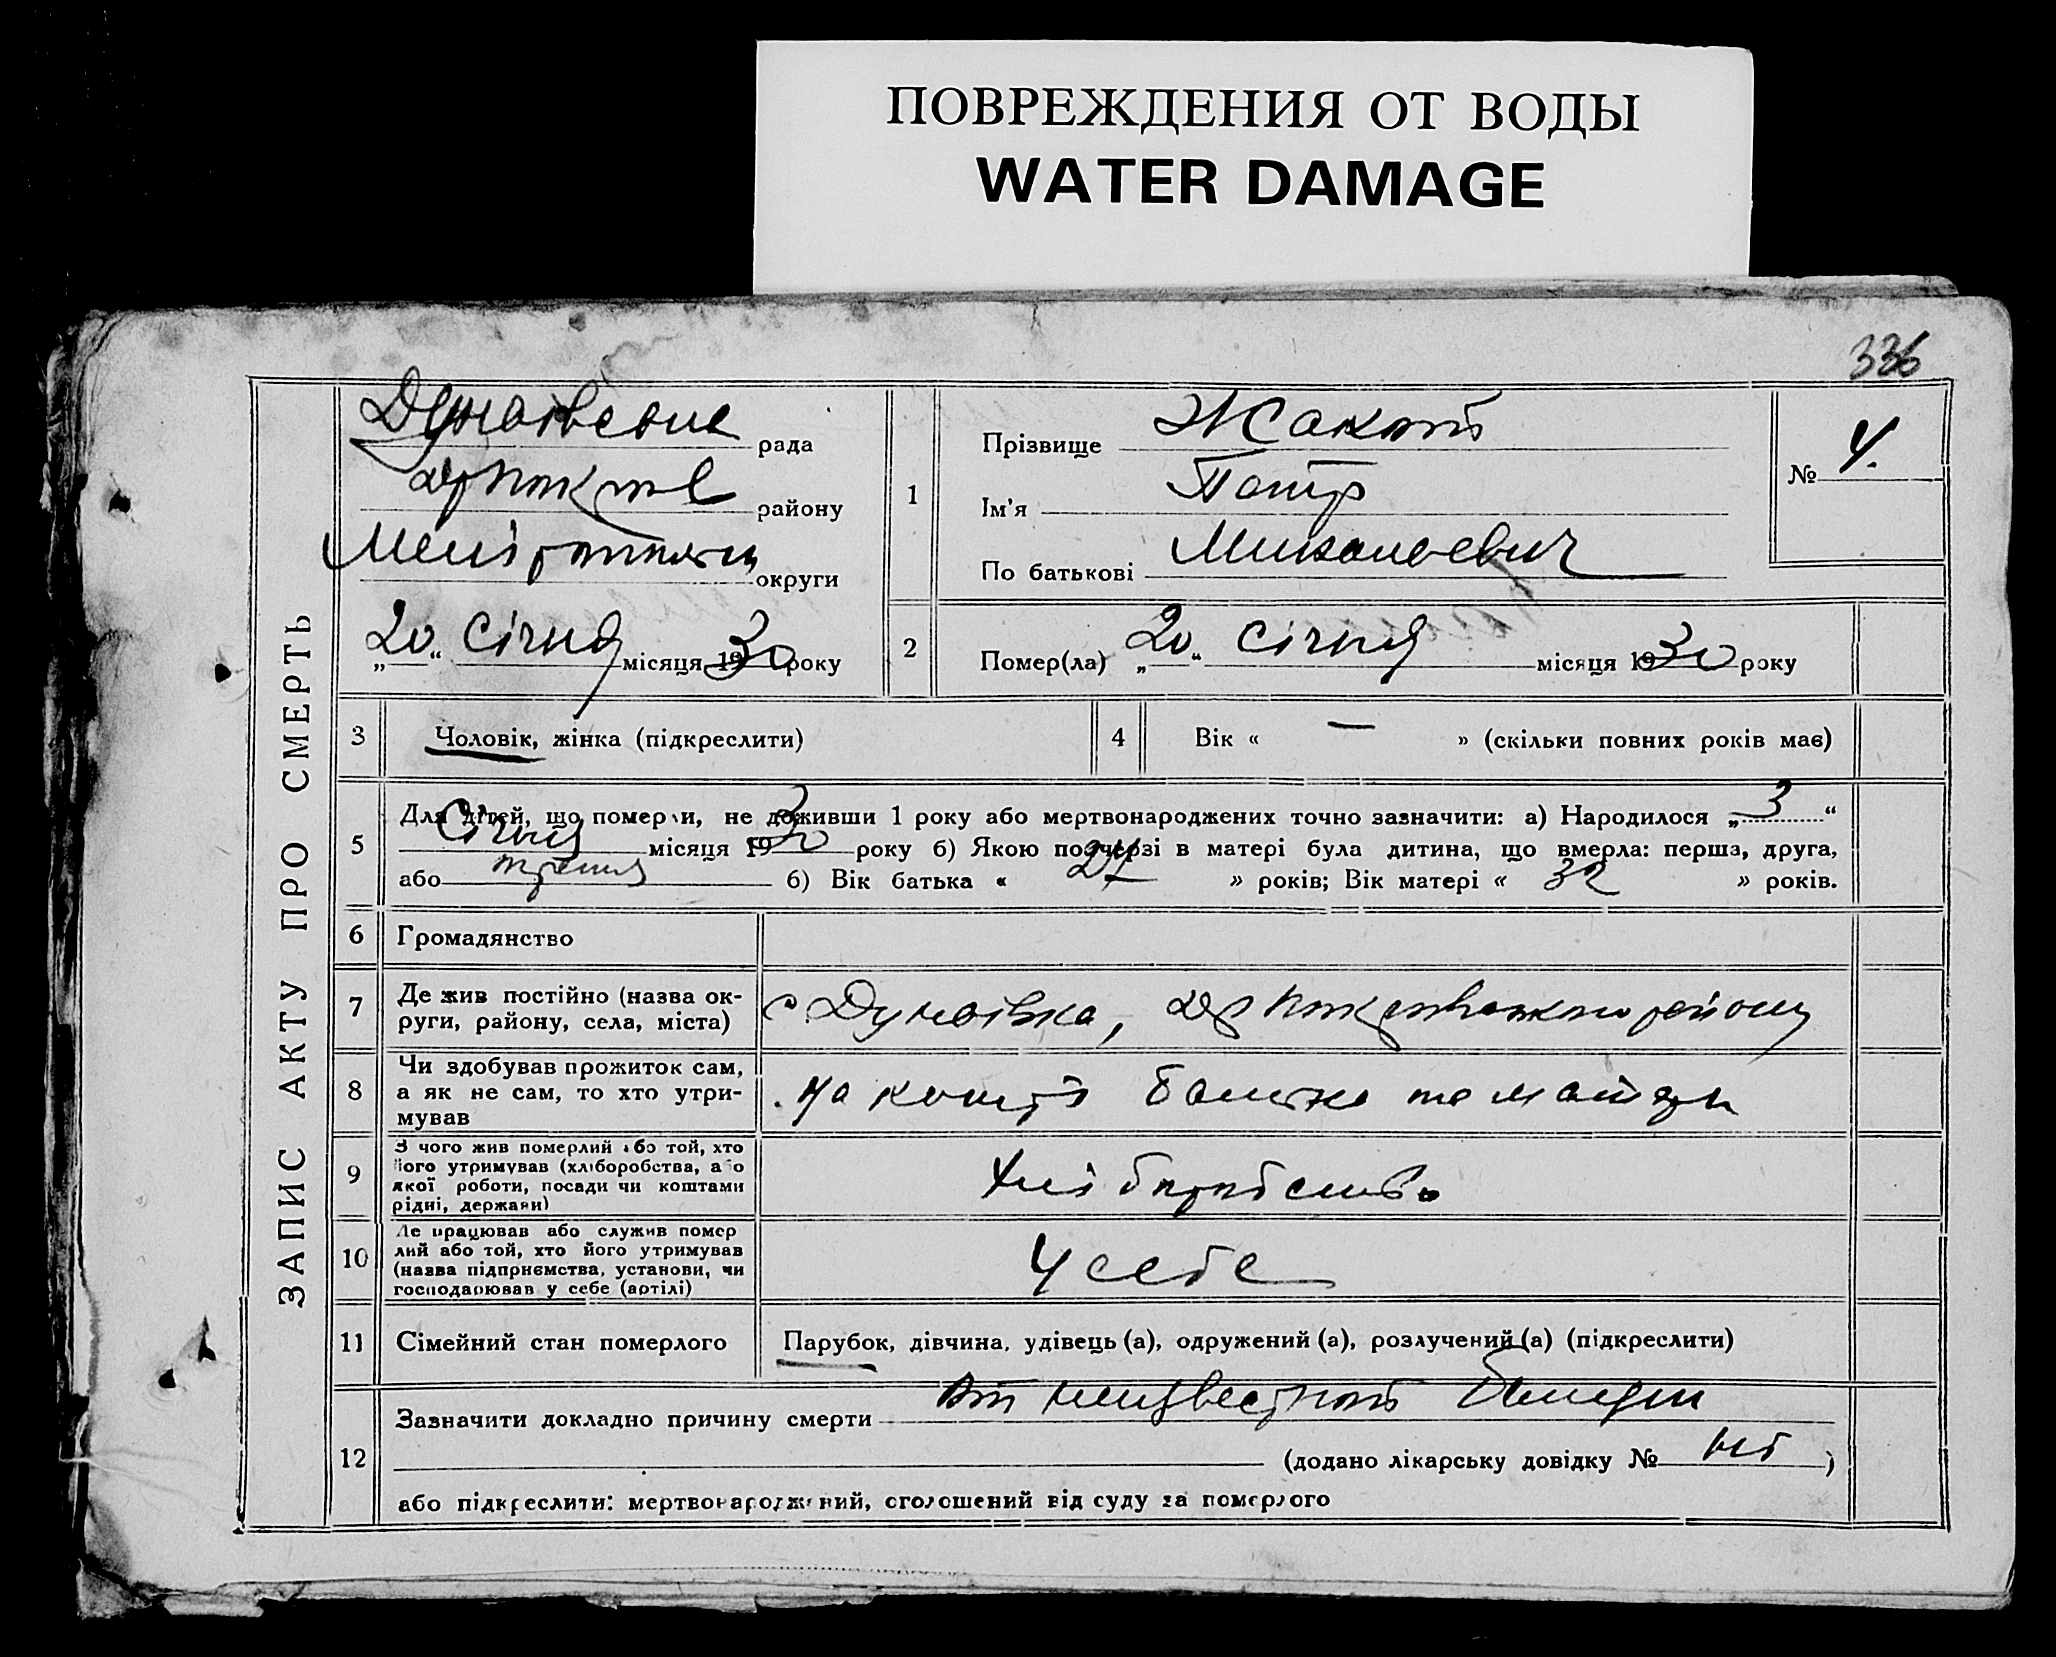 ПОВРЕЖДЕНИЯ ОТ ВОДЫ
WATER DAMAGE
336
ЗАПИС АКТУ ПРО СМЕРТЬ
рада
району
округи
„20“ січня місяця 1930 року
1
Прізвище
Ім'я Петр
По батькові Михальевич
№ 4.
2
Помер(ла) „20“ січня місяця 1930 року
3
Чоловік, жінка (підкреслити)
4
Вік « — » (скільки повних років має)
5
Для дітей, що померли, не доживши 1 року або мертвонароджених точно зазначити: а) Народилося „3“
Січня місяця 1930 року б) Якою по черзі в матері була дитина, що вмерла: перша, друга,
або третя б) Вік батька « » років; Вік матері « 32 » років.
6
Громадянство
7
Де жив постійно (назва ок-
руги, району, села, міста)
с. Дунаівка, району
8
Чи здобував прожиток сам,
а як не сам, то хто утри-
мував
на кошті батька та матери
9
З чого жив померлий або той, хто
його утримував (хліборобства, або
якої роботи, посади чи коштами
рідні, держави)
Хліборобство
10
Де працював або служив помер
лий або той, хто його утримував
(назва підприємства, установи, чи
господарював у себе (артілі)
У себе
11
Сімейний стан померлого
Парубок, дівчина, удівець (а), одружений (а), розлучений (а) (підкреслити)
12
Зазначити докладно причину смерти От неизвестной болезни
(додано лікарську довідку № )
або підкреслити: мертвонароджений, оголошений від суду за померлого